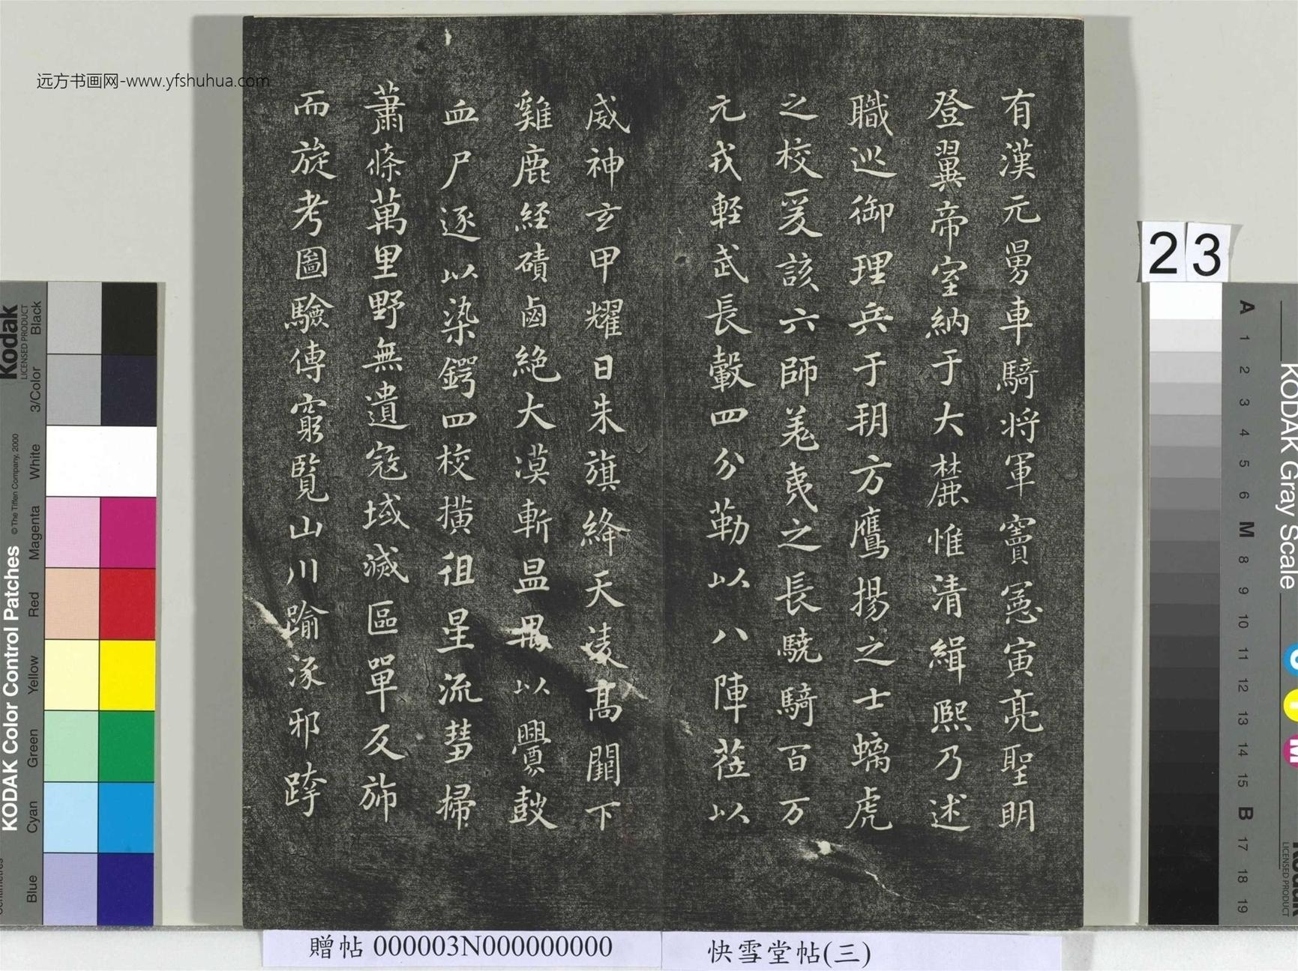 远方书画网-www.yfshuhua.com
有漢元舅車騎将軍竇憲寅亮聖明
登翼帝室納于大麓惟清緝熙乃述
職巡御理兵于朔方鷹揚之士螭虎
之校爰該六師羌夷之長驍騎百万
元戎軽武長轂四分勒以八陣莅以
威神玄甲耀日朱旗絳天凌高闕下
雞鹿経磧鹵絶大漠斬温禺以釁鼓
血尸逐以染鍔四校橫徂星流彗掃
蕭條萬里野無遺寇域滅區單反旆
而旋考圖驗傳窮覽山川踰涿邪跨
23
贈帖 000003N000000000
快雪堂帖(三)
KODAK Color Control Patches
© The Tiffen Company, 2000
Kodak
LICENSED PRODUCT
Blue
Cyan
Green
Yellow
Red
Magenta
White
3/Color
Black
KODAK Gray Scale
A 1 2 3 4 5 6 M 8 9 10 11 12 13 14 15 B 17 18 19